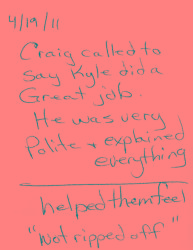 4/19/11
Craig called to
say Kyle did a
Great job.
He was very
Polite & explained
everything
helped them feel
"not ripped off"